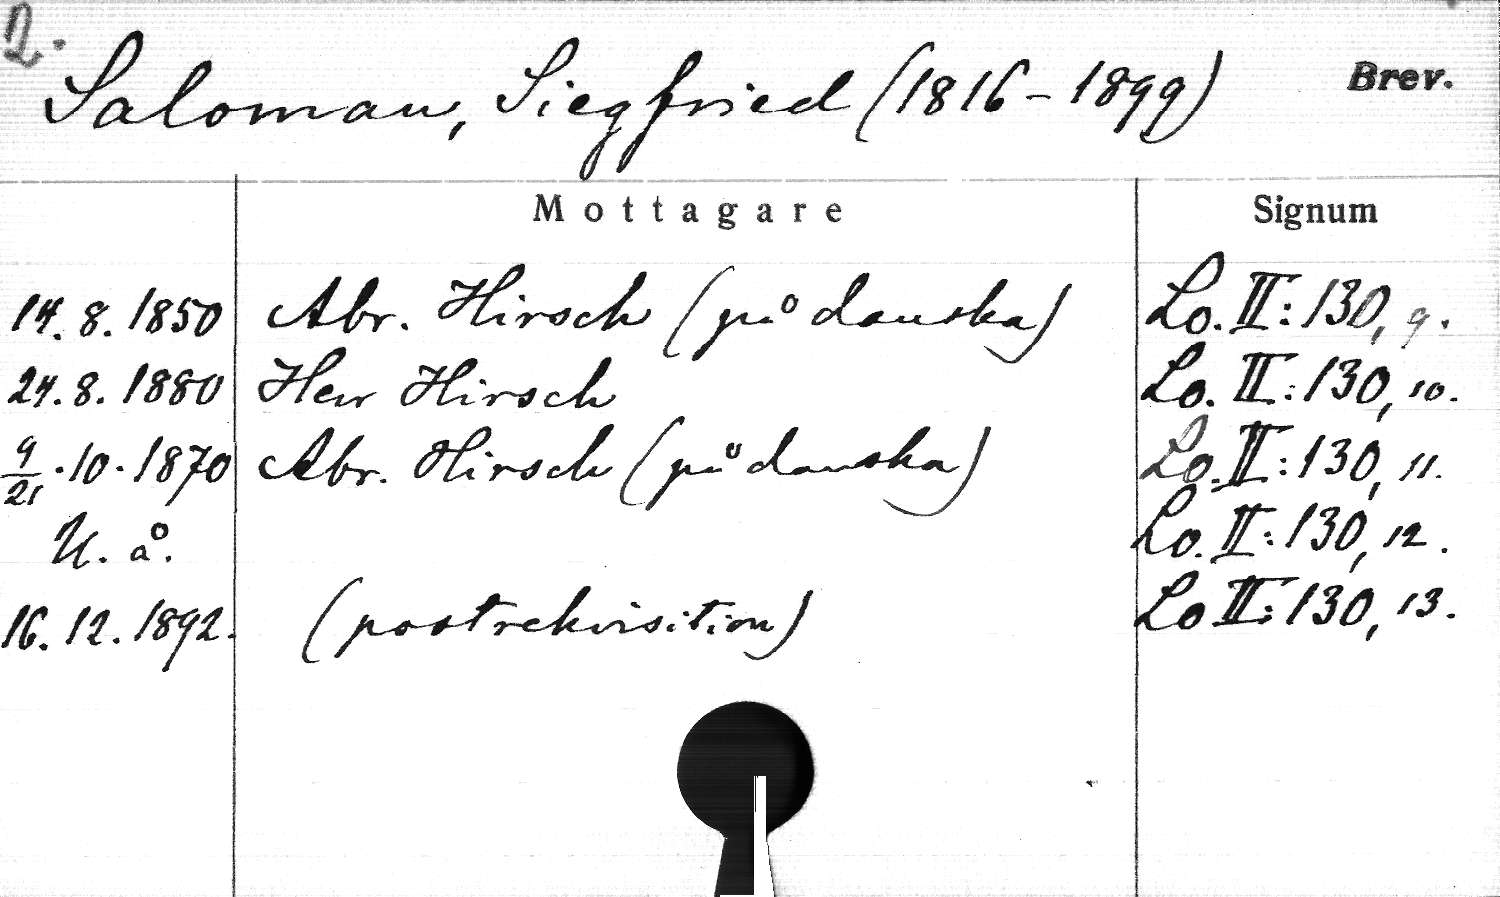 2.
Saloman, Siegfried (1816-1899) Brev.
Mottagare Signum
14. 8. 1850 Abr. Hirsch (på danska) Lo. II: 130, 9.
24. 8. 1880 Herr Hirsch Lo. II: 130, 10.
9/21. 10. 1870 Abr. Hirsch (på danska) Lo. II: 130, 11.
U. å. Lo. II: 130, 12.
16. 12. 1892. (postrekvisition) Lo II: 130, 13.